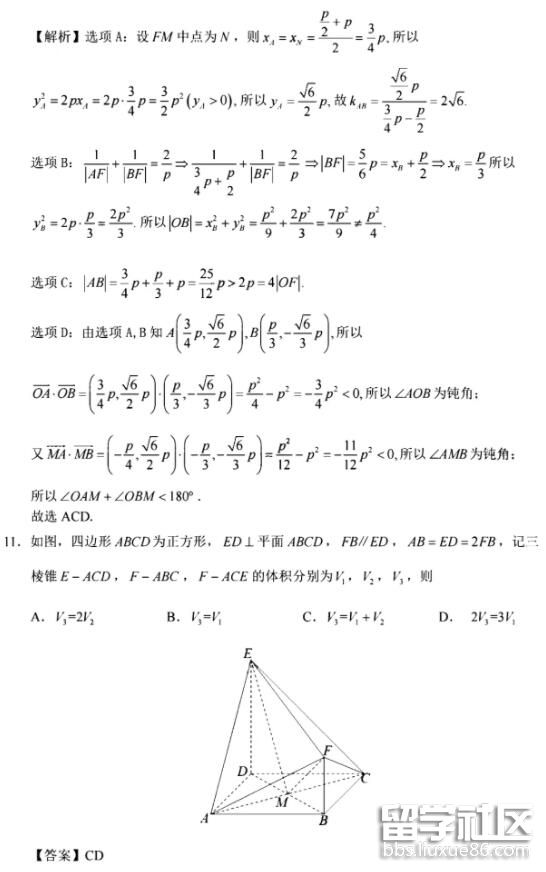 【解析】选项 A: 设 FM 中点为 N, 则 x_A = x_N = (p/2 + p)/2 = 3/4 p, 所以
y_A² = 2px_A = 2p·3/4 p = 3/2 p² (y_A > 0), 所以 y_A = √6/2 p, 故 k_AB = (√6/2 p)/(3/4 p − p/2) = 2√6.
选项 B: 1/|AF| + 1/|BF| = 2/p ⇒ 1/(3/4 p + p/2) + 1/|BF| = 2/p ⇒ |BF| = 5/6 p = x_B + p/2 ⇒ x_B = p/3 所以
y_B² = 2p·p/3 = 2p²/3. 所以 |OB| = x_B² + y_B² = p²/9 + 2p²/3 = 7p²/9 ≠ p²/4.
选项 C: |AB| = 3/4 p + p/3 + p = 25/12 p > 2p = 4|OF|.
选项 D: 由选项 A, B 知 A(3/4 p, √6/2 p), B(p/3, −√6/3 p), 所以
OA·OB = (3/4 p, √6/2 p)·(p/3, −√6/3 p) = p²/4 − p² = −3/4 p² < 0, 所以 ∠AOB 为钝角;
又 MA·MB = (−p/4, √6/2 p)·(−p/3, −√6/3 p) = p²/12 − p² = −11/12 p² < 0, 所以 ∠AMB 为钝角;
所以 ∠OAM + ∠OBM < 180°.
故选 ACD.
11. 如图, 四边形 ABCD 为正方形, ED ⊥ 平面 ABCD, FB // ED, AB = ED = 2FB, 记三
棱锥 E − ACD, F − ABC, F − ACE 的体积分别为 V₁, V₂, V₃, 则
A. V₃=2V₂ B. V₃=V₁ C. V₃=V₁+V₂ D. 2V₃=3V₁
E
F
D
C
M
A
B
留学社区
bbs.liuxue86.com
【答案】CD